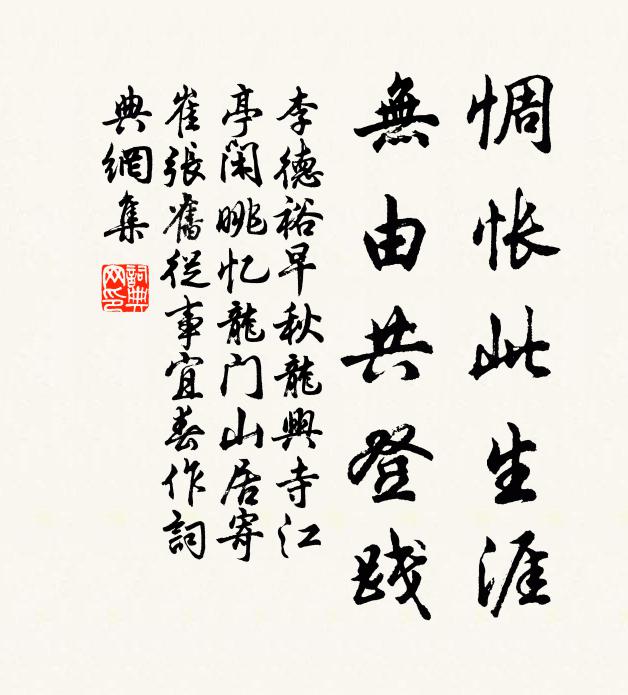 惆怅此生涯
無由共登践
李德裕早秋龍興寺江
亭閑眺忆龍门山居寄
崔張舊從事宜春作詞
典網集
詞典网印